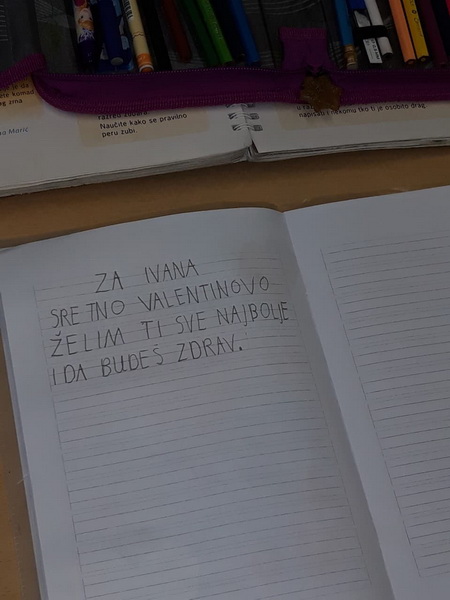 razred zubara.
Naučite kako se pravilno
peru zubi.
napisati nekomu tko ti je osobito drag.
ZA IVANA
SRETNO VALENTINOVO
ŽELIM TI SVE NAJBOLJE
I DA BUDEŠ ZDRAV.